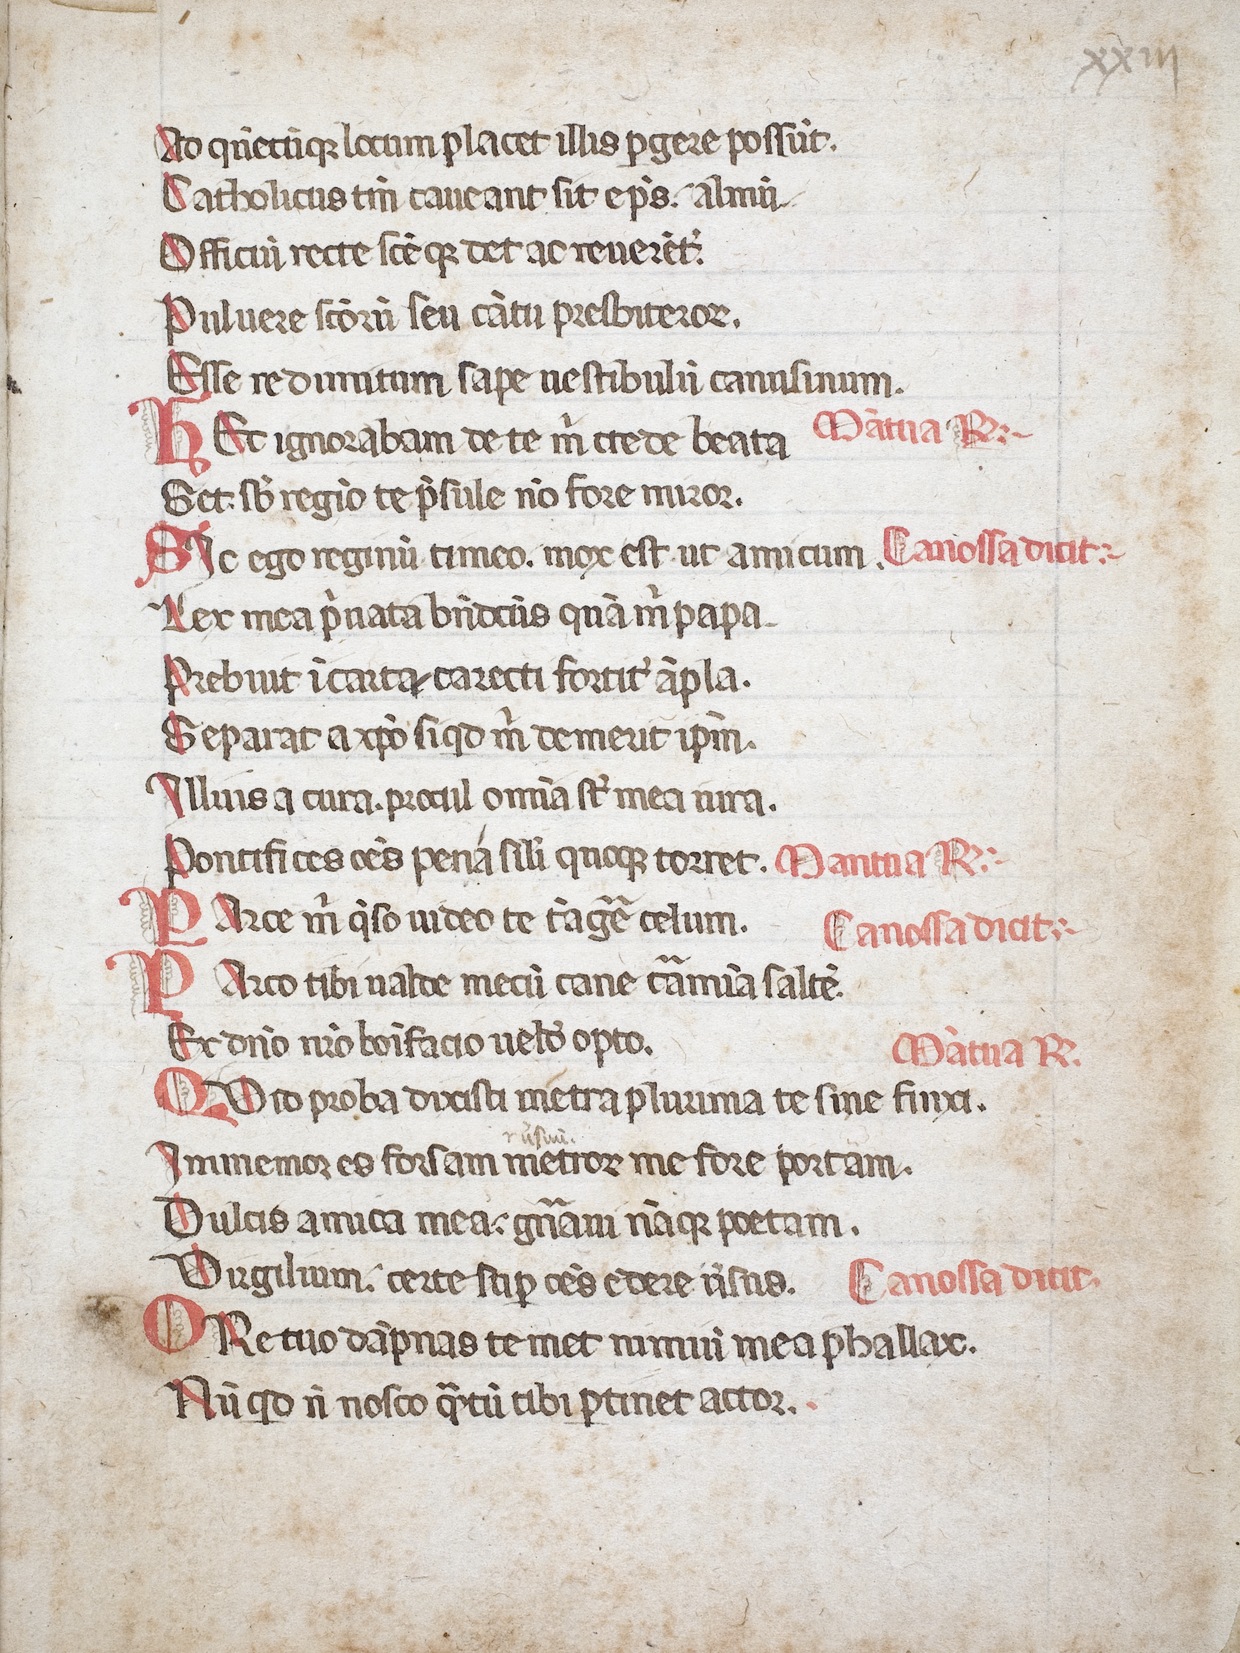 xxiii
Ad qn̄cūq locum placet illis pgere possūt.
Catholicus tm̄ caueant sit ep̄s. almū
Officiū recte scēq det ac reuerēt᷒.
Puluere scōrū seu cātu presbiteror.
Esse redimitum sape uestibulū canusinum.
HEc ignorabam de te m̄ crede beata Mātua R.
Set. sb̄ regio te p̄sule nō fore miror.
SIc ego reginū timeo. mox est ut amicum. Canossa dicit.
Lex mea p̄uata bn̄dctūs quā m̄ papa.
Prebuit ī carta carecti fortit᷒ āpla.
Separat a xp̄o siqd m̄ demerit ip̄m.
Illius a cura. procul omīa st᷒ mea iura.
Pontifices oēs pena sili quoq torret. Mantua R.
PArce m̄ q̄so uideo te tāgē celum. Canossa dicit.
PArco tibi ualde mecū cane cāmīa saltē.
Ex dn̄o nr̄o boīfacio uelb̄ opto. Mātua R.
QVod proba dixisti metra plurima te sine finxi.
rusm̄.
Immemor es forsam metror me fore portam.
Dulcis amica mea. gn̄am nāq poetam.
Virgilium. certe scip oēs edere ūsus. Canossa dicit.
ORe tuo dāpnas temet nimiū mea phallax.
Nū qd n̄ nosco q̄tū tibi ptinet actor.